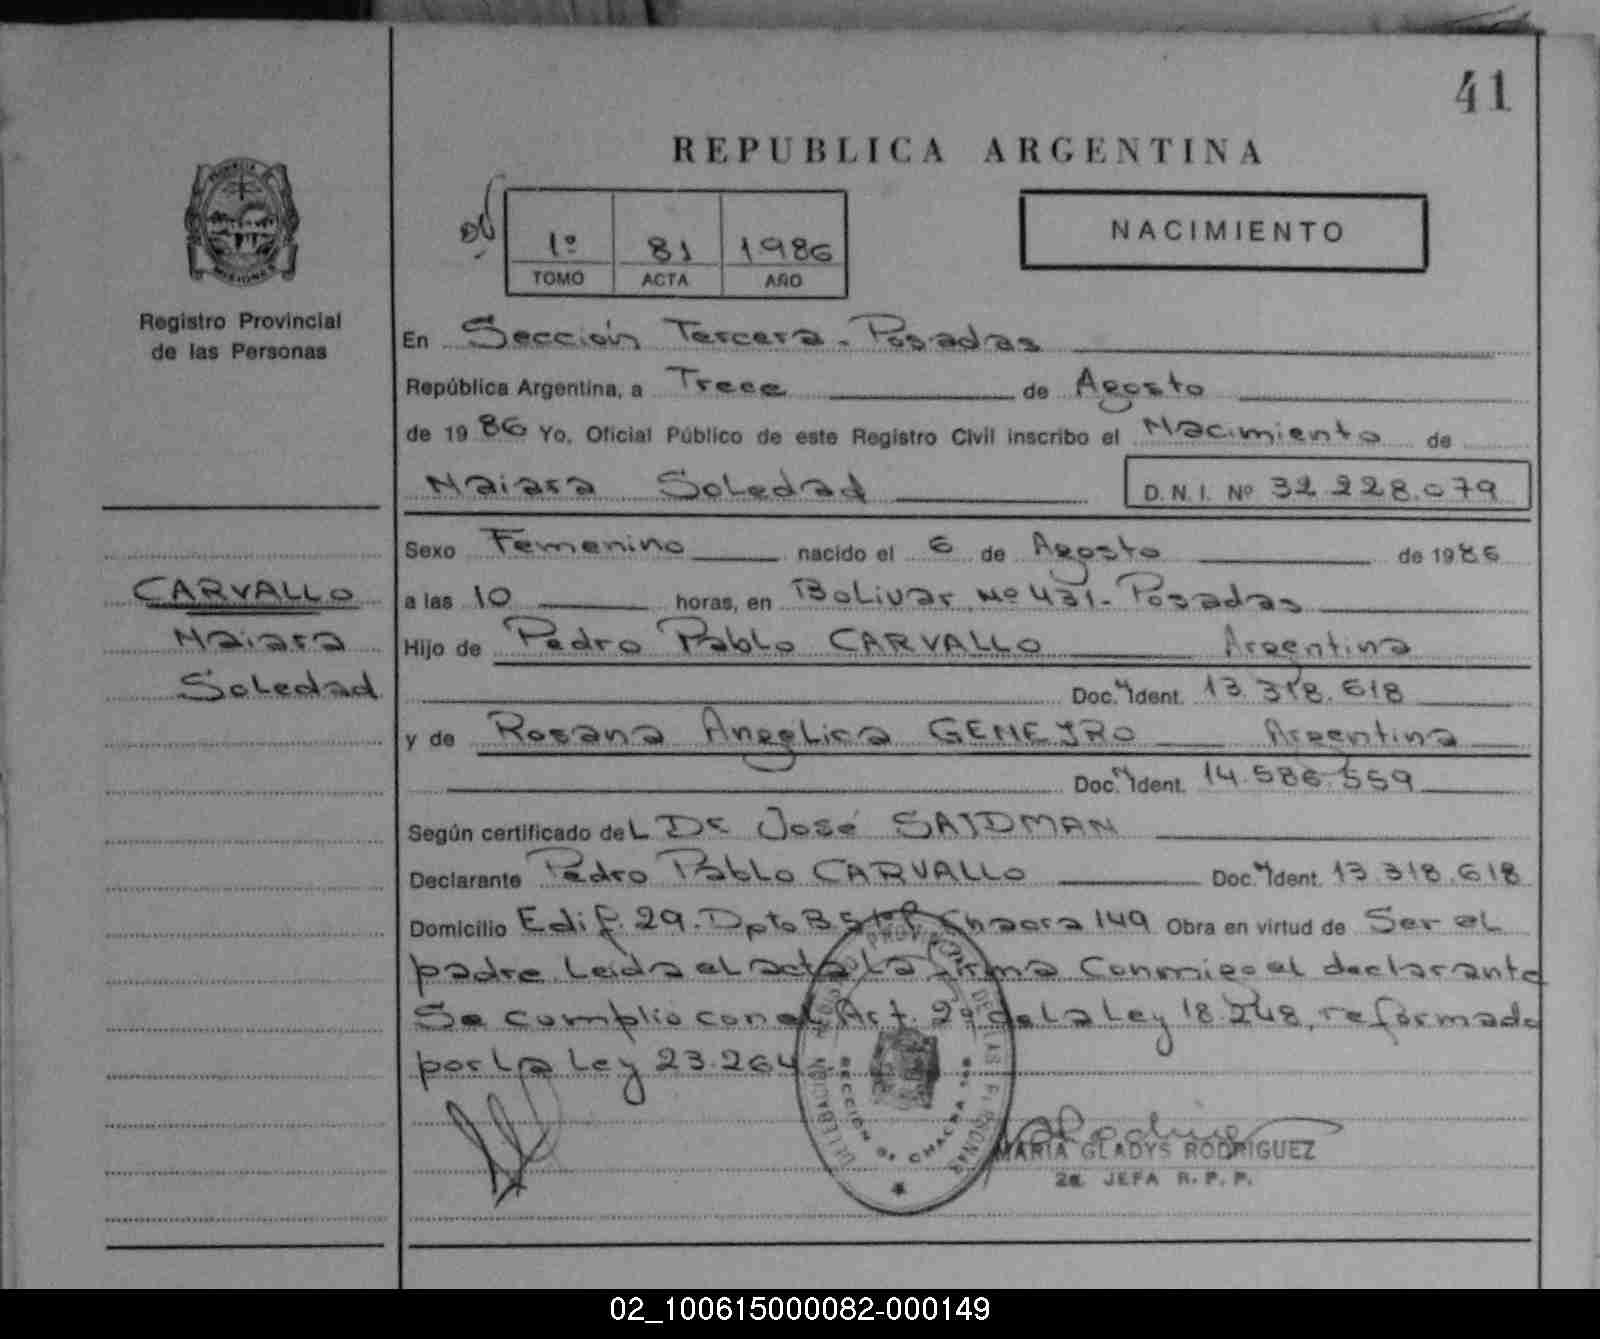 41
REPUBLICA ARGENTINA
PROVINCIA
MISIONES
Registro Provincial
de las Personas
1º 81 1986
TOMO ACTA AÑO
NACIMIENTO
En Sección Tercera - Posadas
República Argentina, a Trece de Agosto
de 1986 Yo, Oficial Público de este Registro Civil inscribo el Nacimiento de
Naiara Soledad D.N.I. Nº 32.228.079
Sexo Femenino nacido el 6 de Agosto de 1986
CARVALLO
Naiara
Soledad
a las 10 horas, en Bolivar Nº 431- Posadas
Hijo de Pedro Pablo CARVALLO Argentina
Doc. Ident. 13.318.618
y de Rosana Angélica GENEYRO Argentina
Doc. Ident. 14.586.559
Según certificado deL Dr José SAIDMAN
Declarante Pedro Pablo CARVALLO Doc. Ident. 13.318.618
Domicilio Edif. 29. Dpto B Chacra 149 Obra en virtud de Ser el
padre. Leida el acta La firma Conmigo el declarante
Se cumplio con el Art. 2º de La Ley 18.248, reformado
por La Ley 23.264
DELEGACION REGISTRO PROVINCIAL DE LAS PERSONAS
SECCION 3a CHACRA
MARIA GLADYS RODRIGUEZ
2a JEFA R.P.P.
02_100615000082-000149